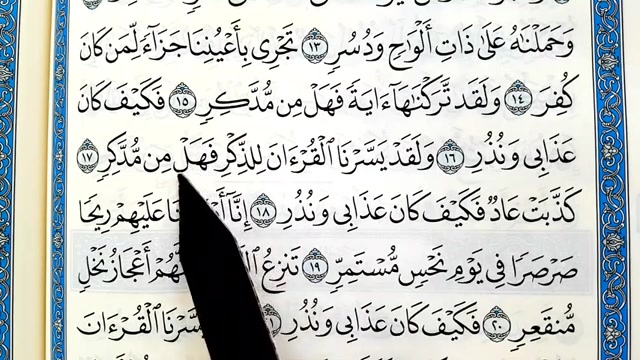 وَحَمَلْنَٰهُ عَلَىٰ ذَاتِ أَلْوَٰحٍ وَدُسُرٍ ١٣ تَجْرِى بِأَعْيُنِنَا جَزَآءً لِّمَن كَانَ
كُفِرَ ١٤ وَلَقَد تَّرَكْنَٰهَآ ءَايَةً فَهَلْ مِن مُّدَّكِرٍ ١٥ فَكَيْفَ كَانَ
عَذَابِى وَنُذُرِ ١٦ وَلَقَدْ يَسَّرْنَا ٱلْقُرْءَانَ لِلذِّكْرِ فَهَلْ مِن مُّدَّكِرٍ ١٧
كَذَّبَتْ عَادٌ فَكَيْفَ كَانَ عَذَابِى وَنُذُرِ ١٨ إِنَّآ عَلَيْهِمْ رِيحًا
صَرْصَرًا فِى يَوْمِ نَحْسٍ مُّسْتَمِرٍّ ١٩ تَنزِعُ أَعْجَازُ نَخْلٍ
مُّنقَعِرٍ ٢٠ فَكَيْفَ كَانَ عَذَابِى وَنُذُرِ ٱلْقُرْءَانَ